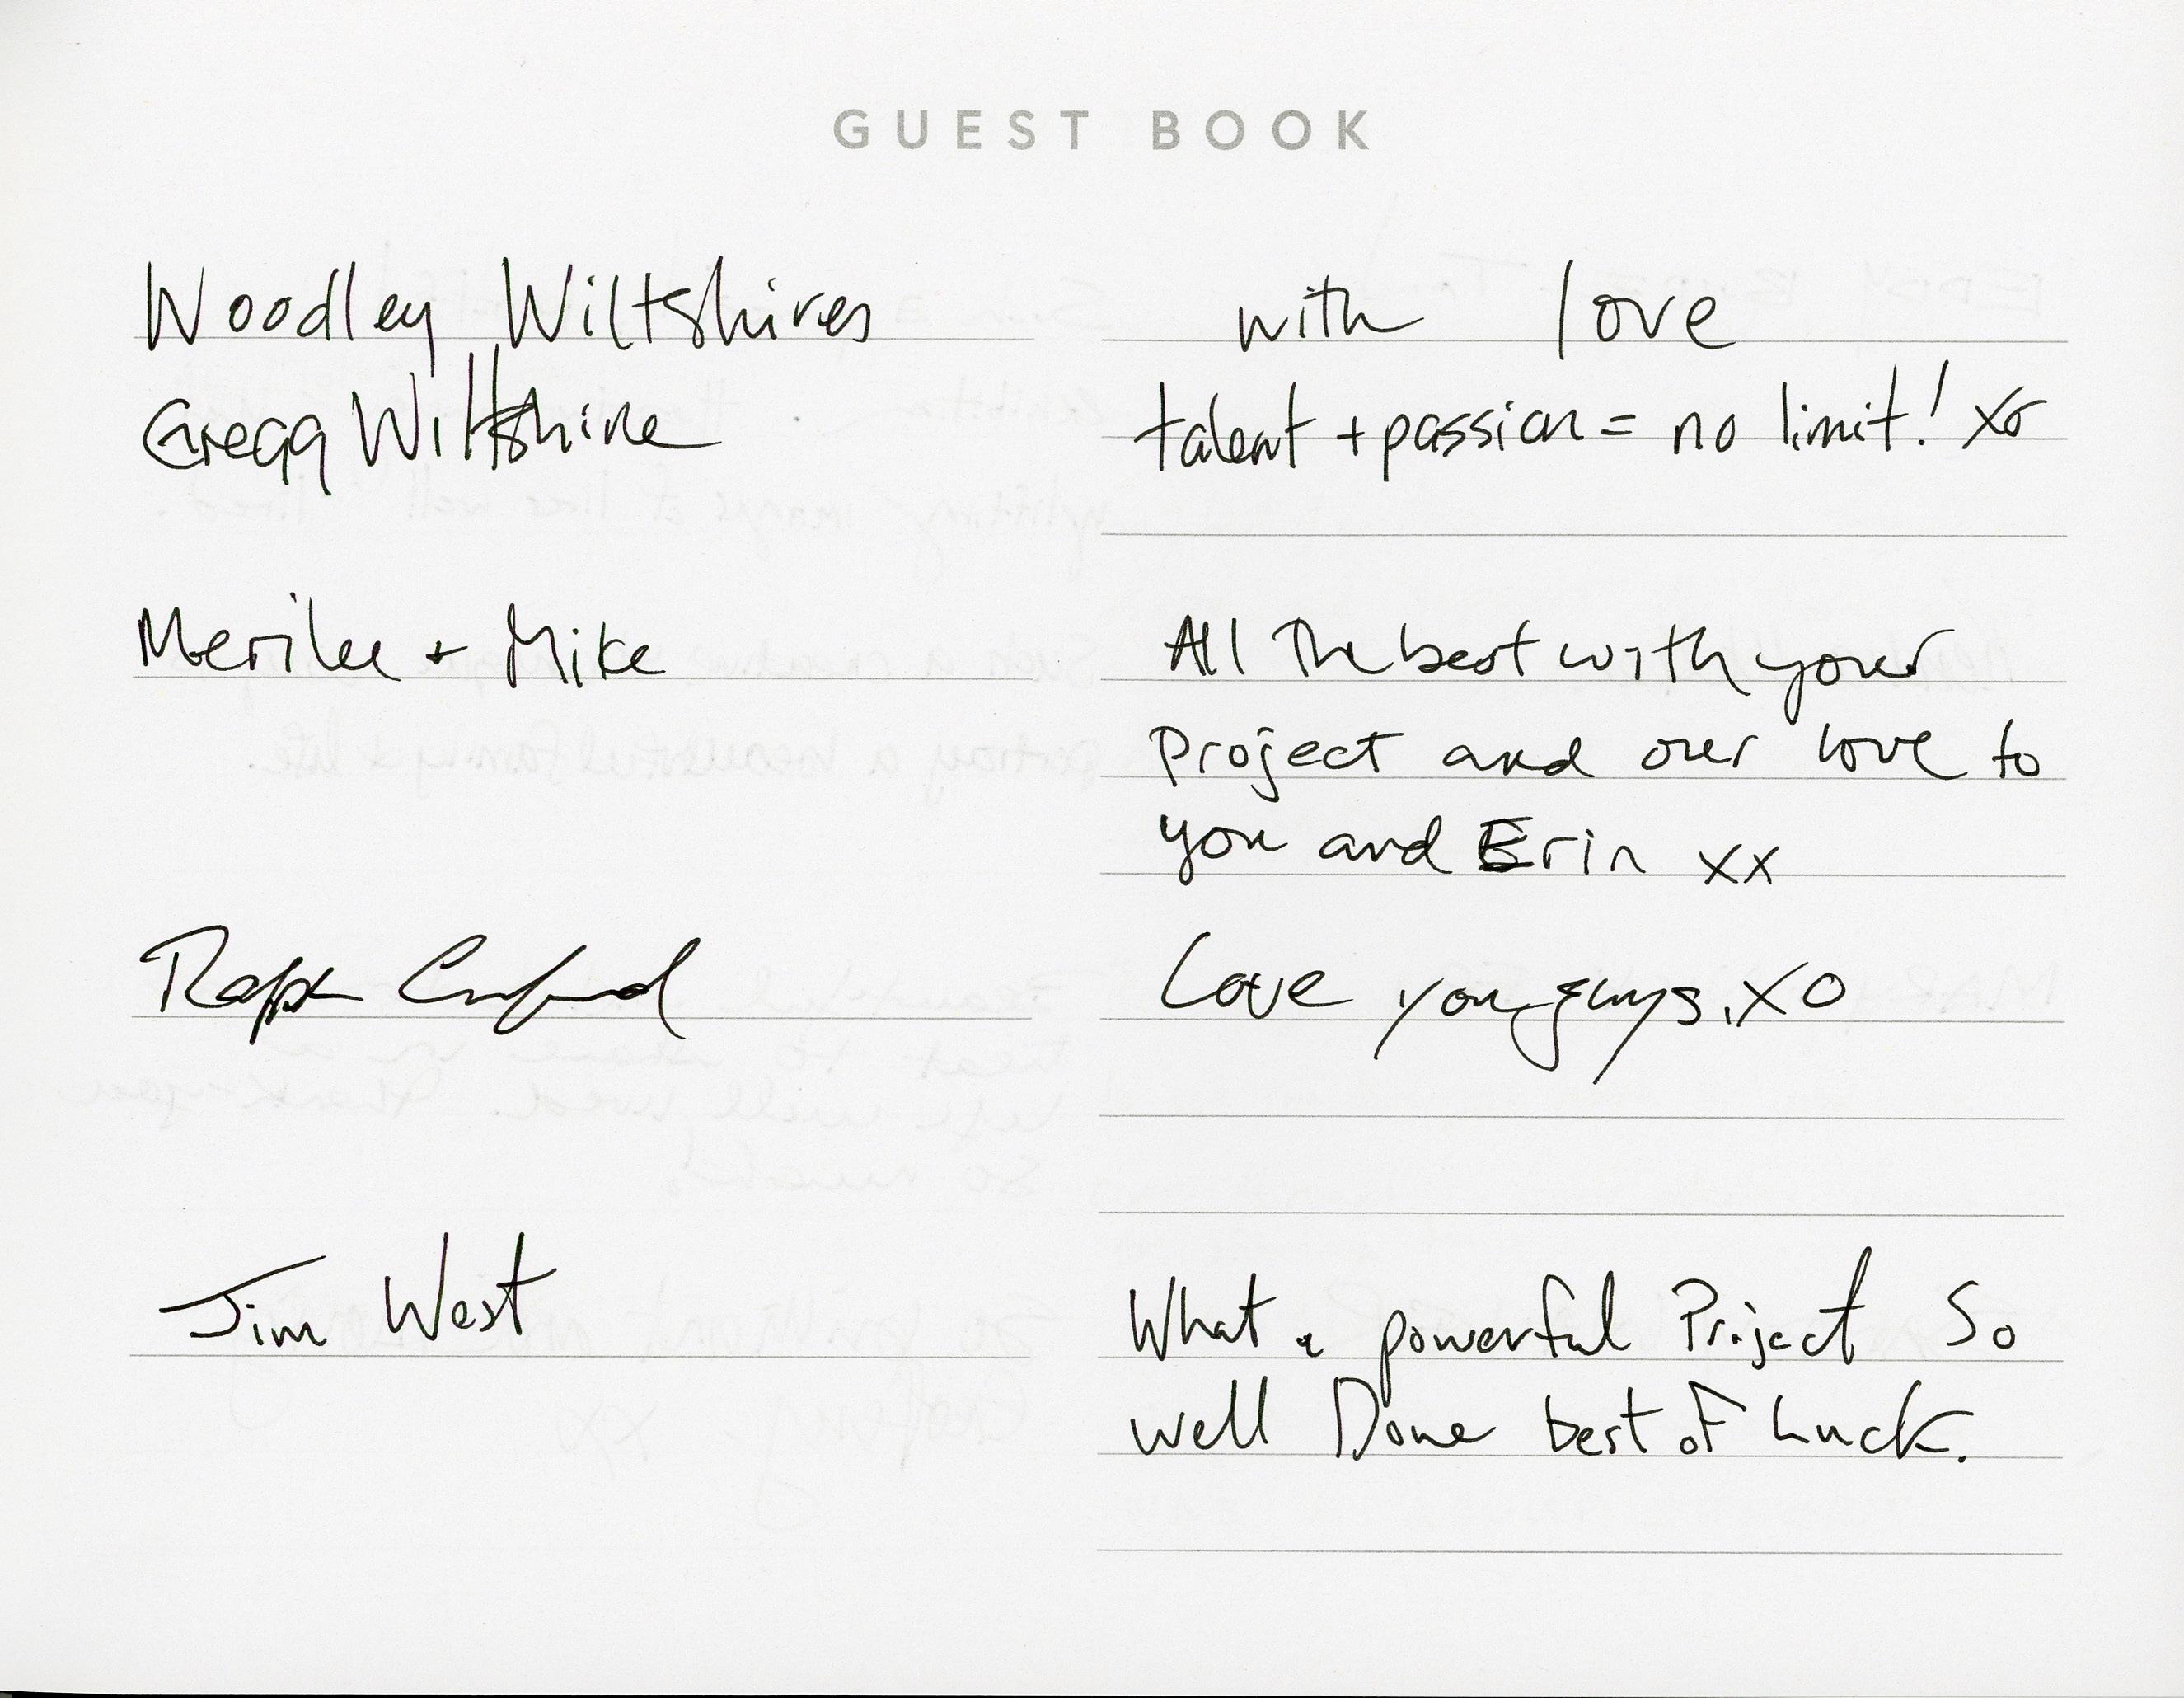 GUEST BOOK
Woodley Wiltshires
with love
Gregg Wiltshire
talent + passion = no limit! xo
Merilee + Mike
All the best with your
project and our love to
you and Erin xx
Ralph
Love you guys. XO
Jim West
What a powerful Project So
well Done best of Luck.